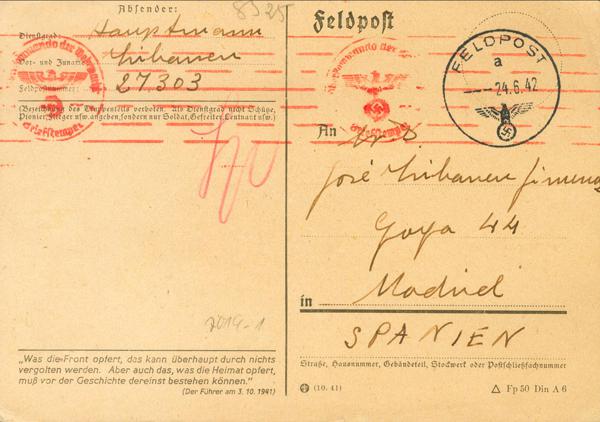 8525
Absender:
Dienstgrad: Hauptmann
Vor- und Zuname:
Feldpostnummer: 27.303
(Bezeichnung des Truppenteils verboten. Als Dienstgrad nicht Schütze,
Pionier, Flieger usw. angeben, sondern nur Soldat, Gefreiter, Leutnant usw.)
Briefstempel
2019-1
„Was die Front opfert, das kann überhaupt durch nichts
vergolten werden. Aber auch das, was die Heimat opfert,
muß vor der Geschichte dereinst bestehen können."
(Der Führer am 3. 10. 1941)
Feldpost
Briefstempel
FELDPOST
a
24.6.42
An
José
Goya 44
in Madrid
SPANIEN
Straße, Hausnummer, Gebäudeteil, Stockwerk oder Postschließfachnummer
(10. 41)
Fp 50 Din A 6